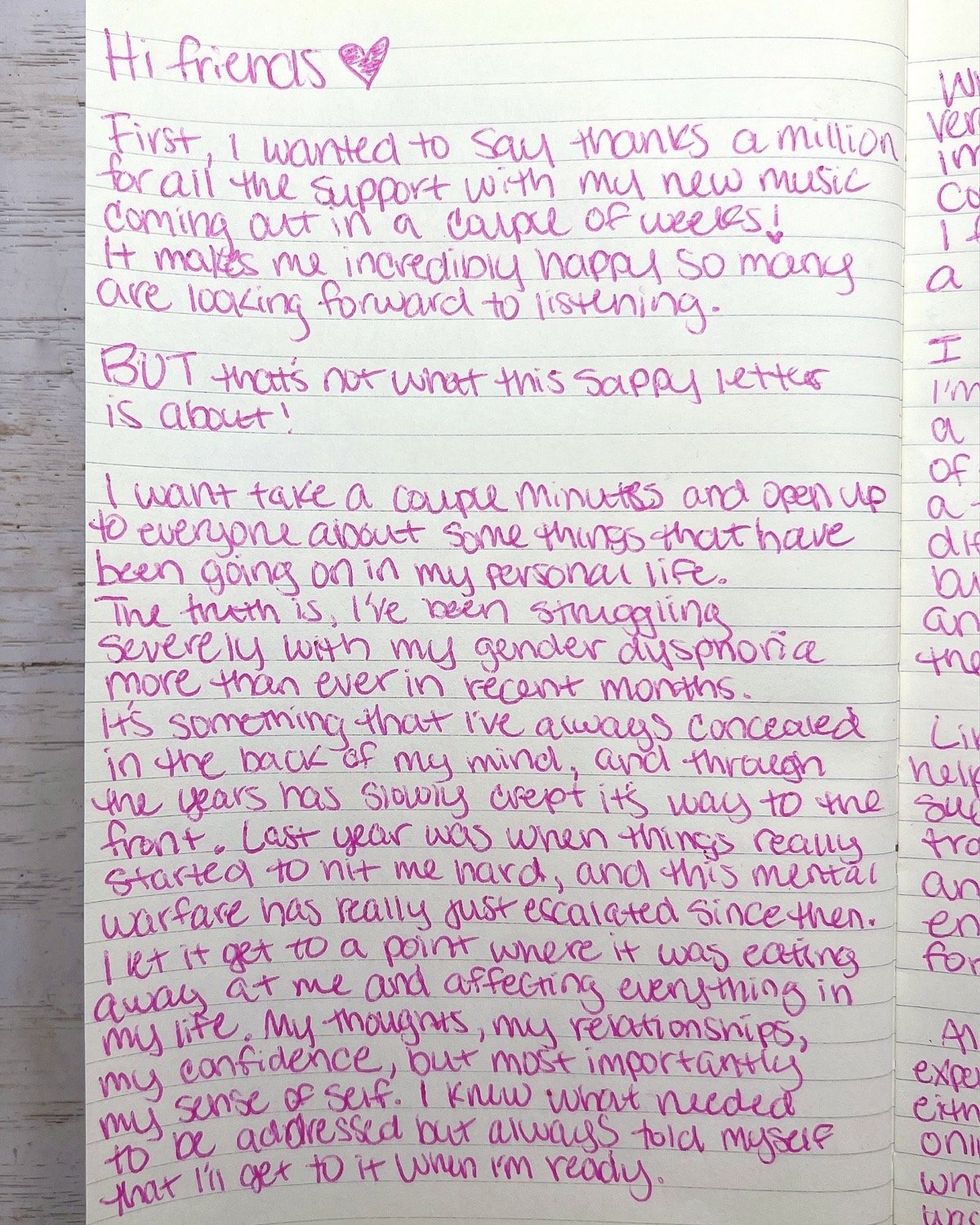 Hi friends
First, I wanted to say thanks a million
for all the support with my new music
coming out in a couple of weeks!
It makes me incredibly happy so many
are looking forward to listening.
BUT that's not what this sappy letter
is about!
I want take a couple minutes and open up
to everyone about some things that have
been going on in my personal life.
The truth is, I've been struggling
severely with my gender dysphoria
more than ever in recent months.
It's something that I've always concealed
in the back of my mind, and through
the years has slowly crept it's way to the
front. Last year was when things really
started to hit me hard, and this mental
warfare has really just escalated since then.
I let it get to a point where it was eating
away at me and affecting everything in
my life. My thoughts, my relationships,
my confidence, but most importantly
my sense of self. I knew what needed
to be addressed but always told myself
that I'll get to it when I'm ready.
a
I
I'm
a
of
a
the
for